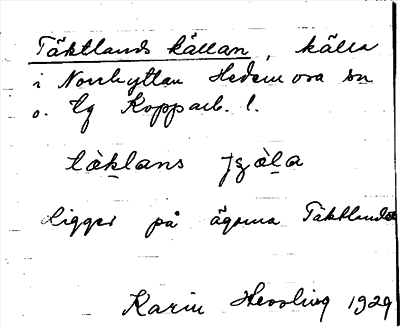 Täktlands källan, källa
i Norrhyttan Hedemora sn
o. tg Kopparb. l.
täklans
Ligger på ägorna Täktlandet
Karin Hessling 1929